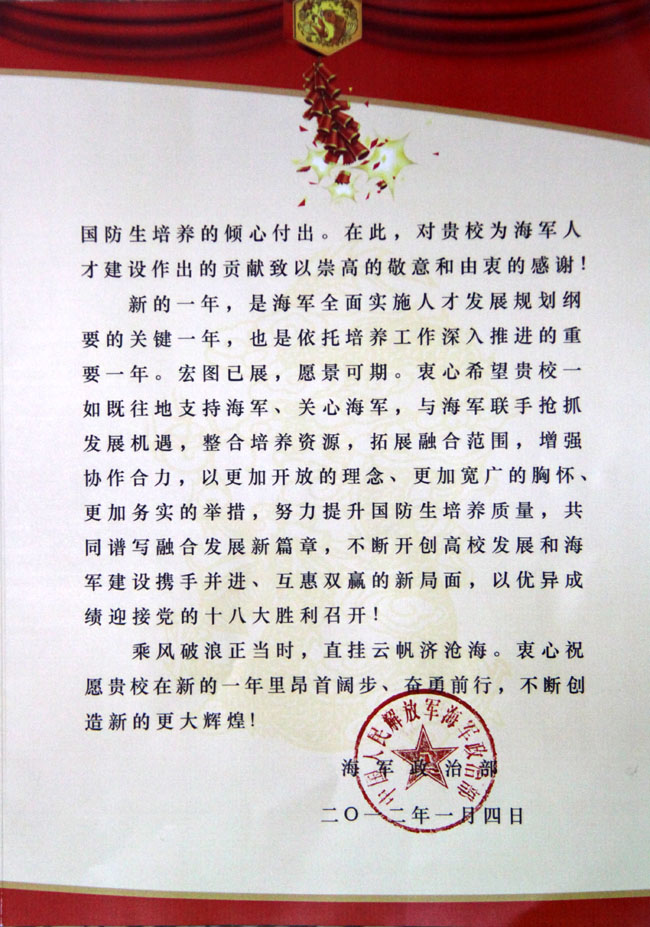 国防生培养的倾心付出。在此，对贵校为海军人
才建设作出的贡献致以崇高的敬意和由衷的感谢！
新的一年，是海军全面实施人才发展规划纲
要的关键一年，也是依托培养工作深入推进的重
要一年。宏图已展，愿景可期。衷心希望贵校一
如既往地支持海军、关心海军，与海军联手抢抓
发展机遇，整合培养资源，拓展融合范围，增强
协作合力，以更加开放的理念、更加宽广的胸怀、
更加务实的举措，努力提升国防生培养质量，共
同谱写融合发展新篇章，不断开创高校发展和海
军建设携手并进、互惠双赢的新局面，以优异成
绩迎接党的十八大胜利召开！
乘风破浪正当时，直挂云帆济沧海。衷心祝
愿贵校在新的一年里昂首阔步、奋勇前行，不断创
造新的更大辉煌！
中国人民解放军海军政治部
海军政治部
二〇一二年一月四日